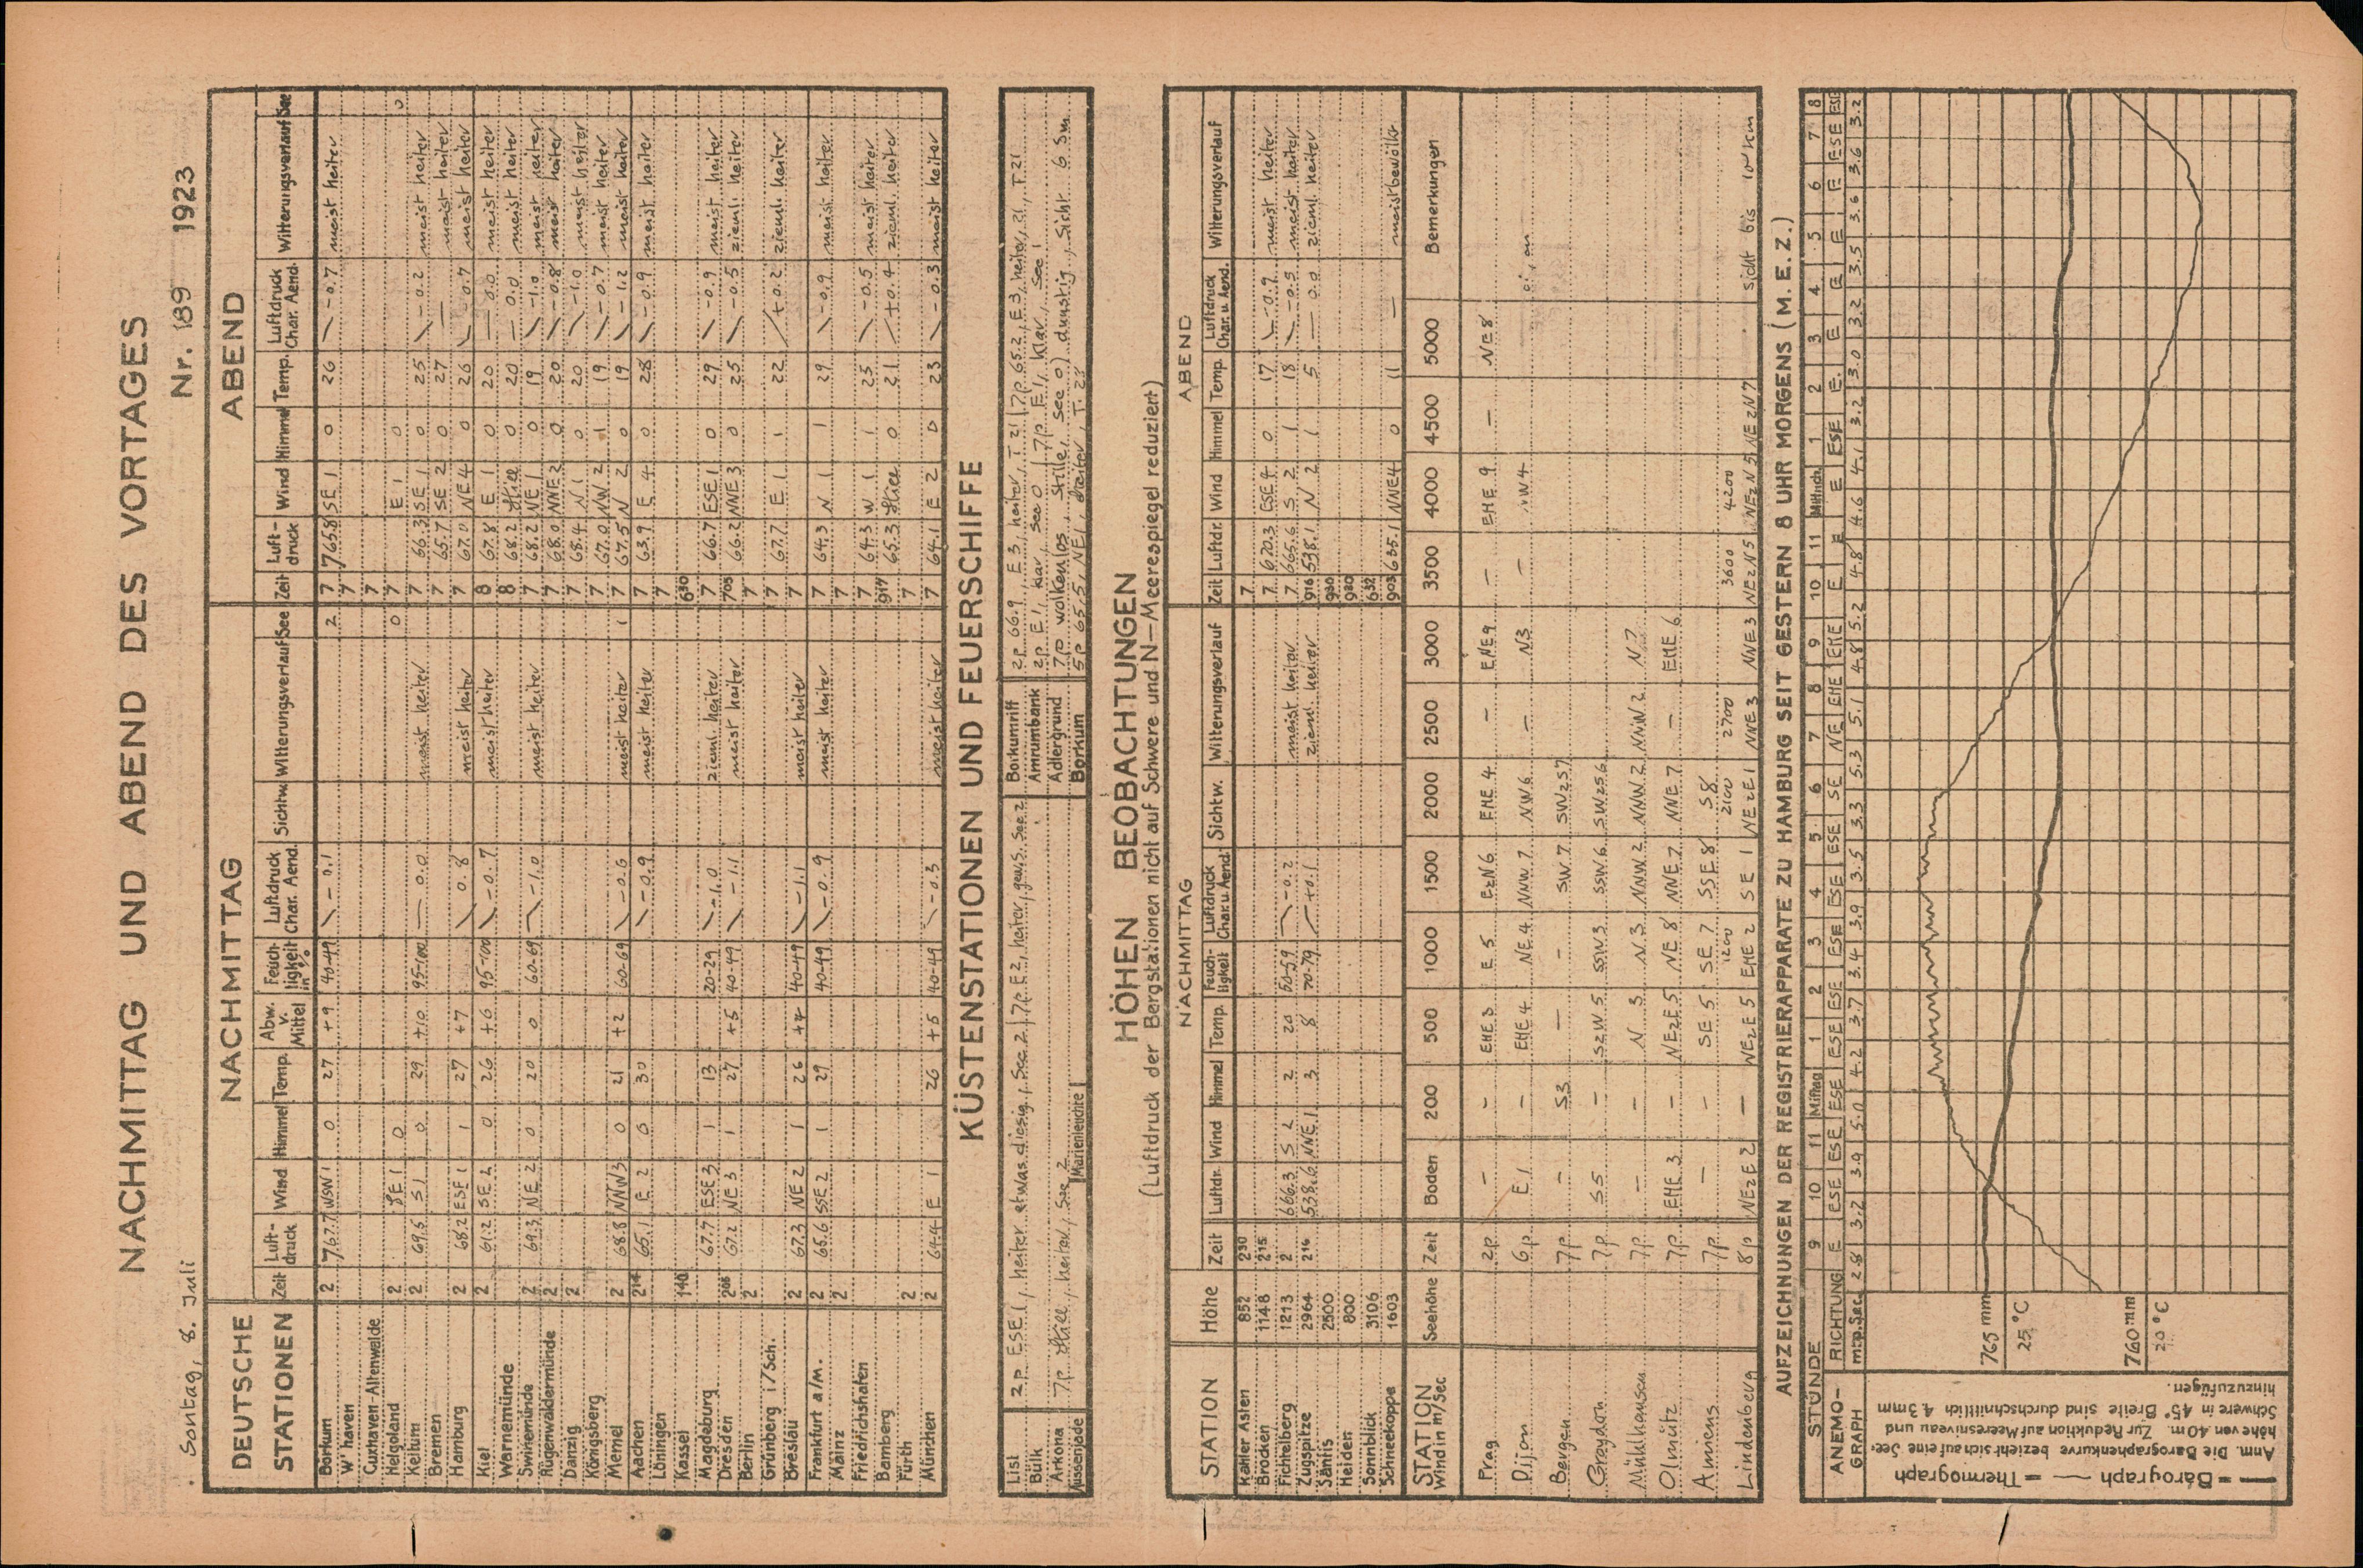 NACHMITTAG UND ABEND DES VORTAGES
Sontag, 8. Juli
Nr. 189 1923
DEUTSCHE STATIONEN
NACHMITTAG
ABEND
Zeit Luft-druck Wind Himmel Temp. Abw. v. Mittel Feuch-tigkeit in % Luftdruck Char. Aend. Sichtw. Witterungsverlauf See Zeit Luft-druck Wind Himmel Temp. Luftdruck Char. Aend. Witterungsverlauf See
Borkum 2 767.7 WSW 1 0 27 +9 40-49 -0.1 2 7 765.8 SE 1 0 26 -0.7 meist heiter
W'haven 7
Cuxhaven-Altenwalde 7
Helgoland 2 SE 1 0 0 7 E 1 0 0
Keitum 2 69.5 S 1 0 29 +10 95-100 0.0 meist heiter 7 66.3 SE 1 0 25 -0.2 meist heiter
Bremen 7 65.7 SE 2 0 27 meist heiter
Hamburg 2 68.2 ESE 1 1 27 +7 0.8 meist heiter 7 67.0 NE 4 0 26 0.7 meist heiter
Kiel 2 61.2 SE 2 0 26 +6 95-100 -0.7 meist heiter 8 67.8 E 1 0 20 0.0 meist heiter
Warnemünde 8 68.2 Stille 0 20 0.0 meist heiter
Swinemünde 2 69.3 NE 2 0 20 0 60-69 -1.0 meist heiter 7 68.2 NE 1 0 19 -1.0 meist heiter
Rügenwaldermünde 2 7 68.0 NNE 2 0 20 -0.8 meist heiter
Danzig 2 7 68.4 N 1 0 20 -1.0 meist heiter
Königsberg 7 67.0 NW 2 1 19 -0.7 meist heiter
Memel 2 68.8 NNW 3 0 21 +2 60-69 -0.6 meist heiter 1 7 67.5 N 2 0 19 -1.2 meist heiter
Aachen 214 65.1 E 2 0 30 -0.9 meist heiter 7 63.9 E 4 0 28 -0.9 meist heiter
Löningen 7
Kassel 140 630
Magdeburg 67.7 ESE 3 1 13 20-29 -1.0 zieml. heiter 7 66.7 ESE 1 0 29 -0.9 meist heiter
Dresden 205 67.2 NE 3 1 27 +5 40-49 -1.1 meist heiter 705 66.2 NNE 3 0 25 -0.5 zieml. heiter
Berlin 2 7
Grünberg i/Sch. 7 67.7 E 1 1 22 +0.2 zieml. heiter
Breslau 2 67.3 NE 2 1 26 +4 40-49 -1.1 meist heiter 7
Frankfurt a/M. 2 65.6 SSE 2 1 29 40-49 -0.9 meist heiter 7 64.3 N 1 1 29 -0.9 meist heiter
Mainz 2 7
Friedrichshafen 7 64.3 W 1 1 25 -0.5 meist heiter
Bamberg 917 65.3 Stille 0 21 +0.4 zieml. heiter
Fürth 2 7
München 2 64.4 E 1 26 +5 40-49 -0.3 meist heiter 7 64.1 E 2 0 23 -0.3 meist heiter
KÜSTENSTATIONEN UND FEUERSCHIFFE
List 2p ESE 1, heiter etwas diesig, See 2 | 7p E 2, heiter, gew. S. See 2
Bülk
Arkona 7p Stille, heiter, See 2
Aussenjade
Marienleuchte
Borkumriff 2p 66.9, E 3, heiter, T 21 | 7p 65.2, E 3, heiter, 21, T. 21
Amrumbank 2p E 1, klar, See 0 7p E 1, klar, See 1
Adlergrund 7p wolkenlos, Stille, See 0, dunstig, Sicht 6 Sm.
Borkum 5p 65.5, NE 1, heiter, T. 27
HÖHEN BEOBACHTUNGEN
(Luftdruck der Bergstationen nicht auf Schwere und N-Meerespiegel reduziert)
NACHMITTAG
ABEND
STATION Höhe Zeit Luftdr. Wind Himmel Temp. Feuch-tigkeit Luftdruck Char. u. Aend. Sichtw. Witterungsverlauf Zeit Luftdr. Wind Himmel Temp. Luftdruck Char. u. Aend. Witterungsverlauf
Kahler Asten 852 230 7
Brocken 1148 215 7 670.3 ESE 4 0 17 -0.9 meist heiter
Fichtelberg 1213 2 666.3 S 2 2 20 50-59 -0.2 meist heiter 7 665.6 S 2 1 18 -0.5 meist heiter
Zugspitze 2964 216 538.6 NNE 1 3 8 70-79 +0.1 zieml. heiter 916 538.1 N 2 1 5 0.0 zieml. heiter
Säntis 2500 930
Heiden 800 930
Sonnblick 3106 632
Schneekoppe 1603 903 635.1 NNE 4 0 11 meist bewölkt
STATION Wind in m/Sec Seehöhe Zeit Boden 200 500 1000 1500 2000 2500 3000 3500 4000 4500 5000 Bemerkungen
Prag 2p - - ENE 3 E 5 EzN 6 ENE 4 - ENE 9 - ENE 9 - NE 8
Dijon 6p E 1 - ENE 4 NE 4 NNW 7 NW 6 - N 3 - NW 4
Bergen 7p - S 3 - - SW 7 SWzS 7
Croydon 7p S 5 - SzW 5 SSW 3 SSW 6 SWzS 6
Mühlhausen 7p - - N 3 N 3 NNW 2 NNW 2 NNW 2 N 7
Olmütz 7p ENE 3 - NEzE 5 NE 8 NNE 7 NNE 7 - ENE 6
Amiens 7p - - SE 5 SE 7 SSE 8 S 8
1200 2100 2700 3600 4200
Lindenberg 8p NEzE 2 - NEzE 5 ENE 2 SE 1 NEzE 1 NNE 3 NNE 3 NEzN 5 NEzN 5 NEzN 7 Sicht bis 10 km
AUFZEICHNUNGEN DER REGISTRIERAPPARATE ZU HAMBURG SEIT GESTERN 8 UHR MORGENS (M. E. Z.)
STUNDE 9 10 11 Mittag 1 2 3 4 5 6 7 8 9 10 11 Mittnch 1 2 3 4 5 6 7 8
ANEMO-GRAPH RICHTUNG E ESE ESE ESE ESE ESE ESE ESE ESE SE NE ENE ENE E E E ESE E. E E E E ESE ESE
m.p.Sec. 2.8 3.2 3.9 5.0 4.2 3.7 3.4 3.9 3.5 3.3 5.3 5.1 4.8 5.2 4.8 4.6 4.1 3.2 3.0 3.2 3.5 3.6 3.6 3.2
765 mm
25 °C
760 mm
20 °C
= Barograph = Thermograph
Anm. Die Barographenkurve bezieht sich auf eine See-
höhe von 40 m. Zur Reduktion auf Meeresniveau und
Schwere in 45° Breite sind durchschnittlich 4.3 mm
hinzuzufügen.